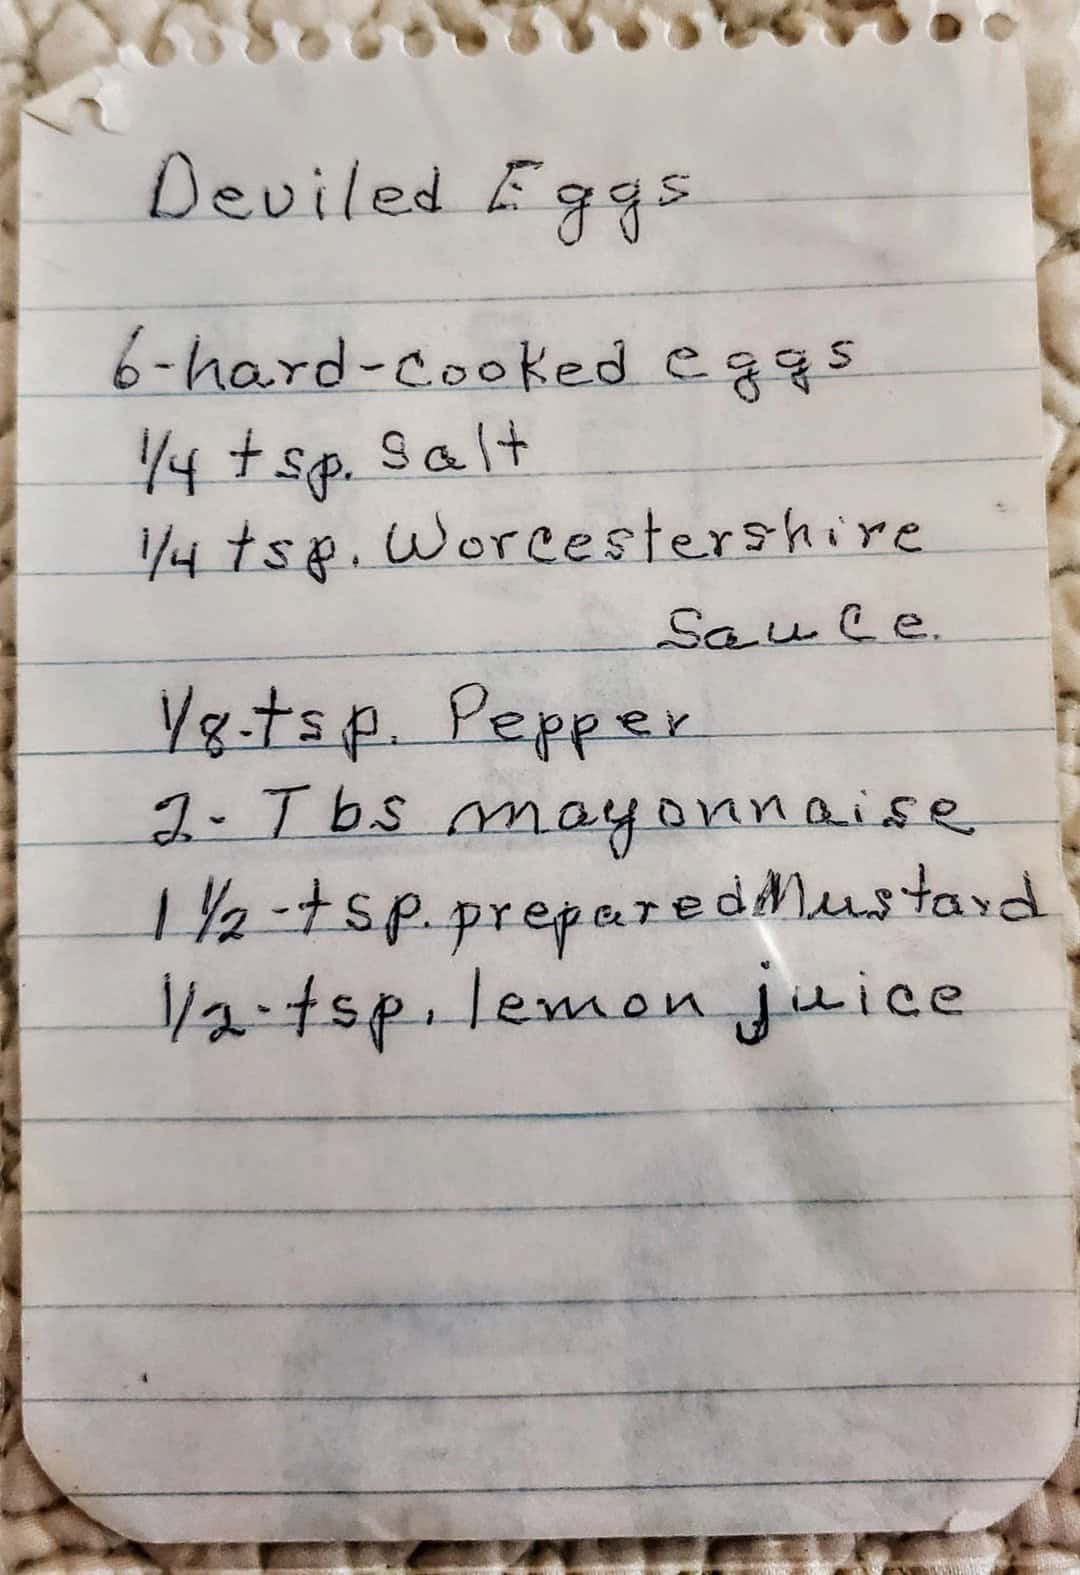 Deviled Eggs
6-hard-cooked eggs
1/4 tsp. Salt
1/4 tsp. Worcestershire
Sauce.
1/8-tsp. Pepper
2-Tbs mayonnaise
1 1/2-tsp. prepared Mustard
1/2-tsp. lemon juice